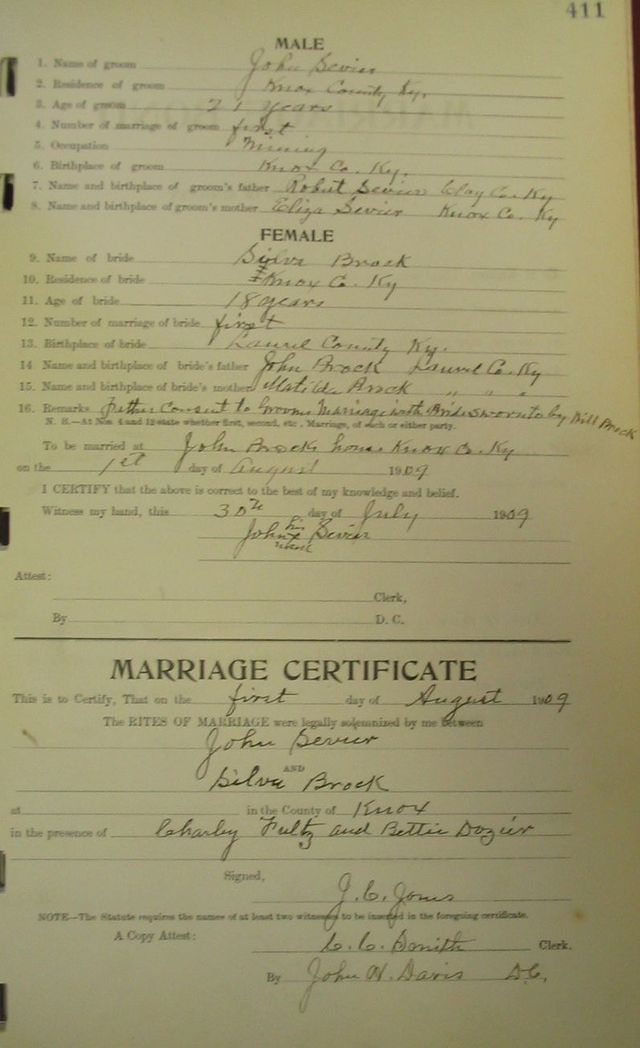 411
MALE
1. Name of groom John Sevier
2. Residence of groom Knox County Ky.
3. Age of groom 21 years
4. Number of marriage of groom first
5. Occupation Mining
6. Birthplace of groom Knox Co. Ky.
7. Name and birthplace of groom's father Robert Sevier Clay Co. Ky
8. Name and birthplace of groom's mother Eliza Sevier Knox Co. Ky
FEMALE
9. Name of bride Silva Brock
10. Residence of bride Knox Co. Ky
11. Age of bride 18 years
12. Number of marriage of bride first
13. Birthplace of bride Laurel County Ky.
14 Name and birthplace of bride's father John Brock Laurel Co. Ky
15. Name and birthplace of bride's mother Matilda Brock " " "
16. Remarks Father Consent to Grooms Marriage with Bride sworn to by Will Brock
N. B.—At Nos. 4 and 12 state whether first, second, etc. Marriage, of each or either party.
To be married at John Brocks home Knox Co. Ky
on the 1st day of August 1909
I CERTIFY that the above is correct to the best of my knowledge and belief.
Witness my hand, this 30th day of July 1909
his
John x Sevier
mark
Attest:
Clerk,
By D. C.
MARRIAGE CERTIFICATE
This is to Certify, That on the first day of August 1909
The RITES OF MARRIAGE were legally solemnized by me between
John Sevier
AND
Silva Brock
at in the County of Knox
in the presence of Charley Fultz and Bettie Dozier
Signed,
J. C. Jones
NOTE—The Statute requires the names of at least two witnesses to be inserted in the foregoing certificate.
A Copy Attest: C. C. Smith Clerk.
By John W. Davis D.C.